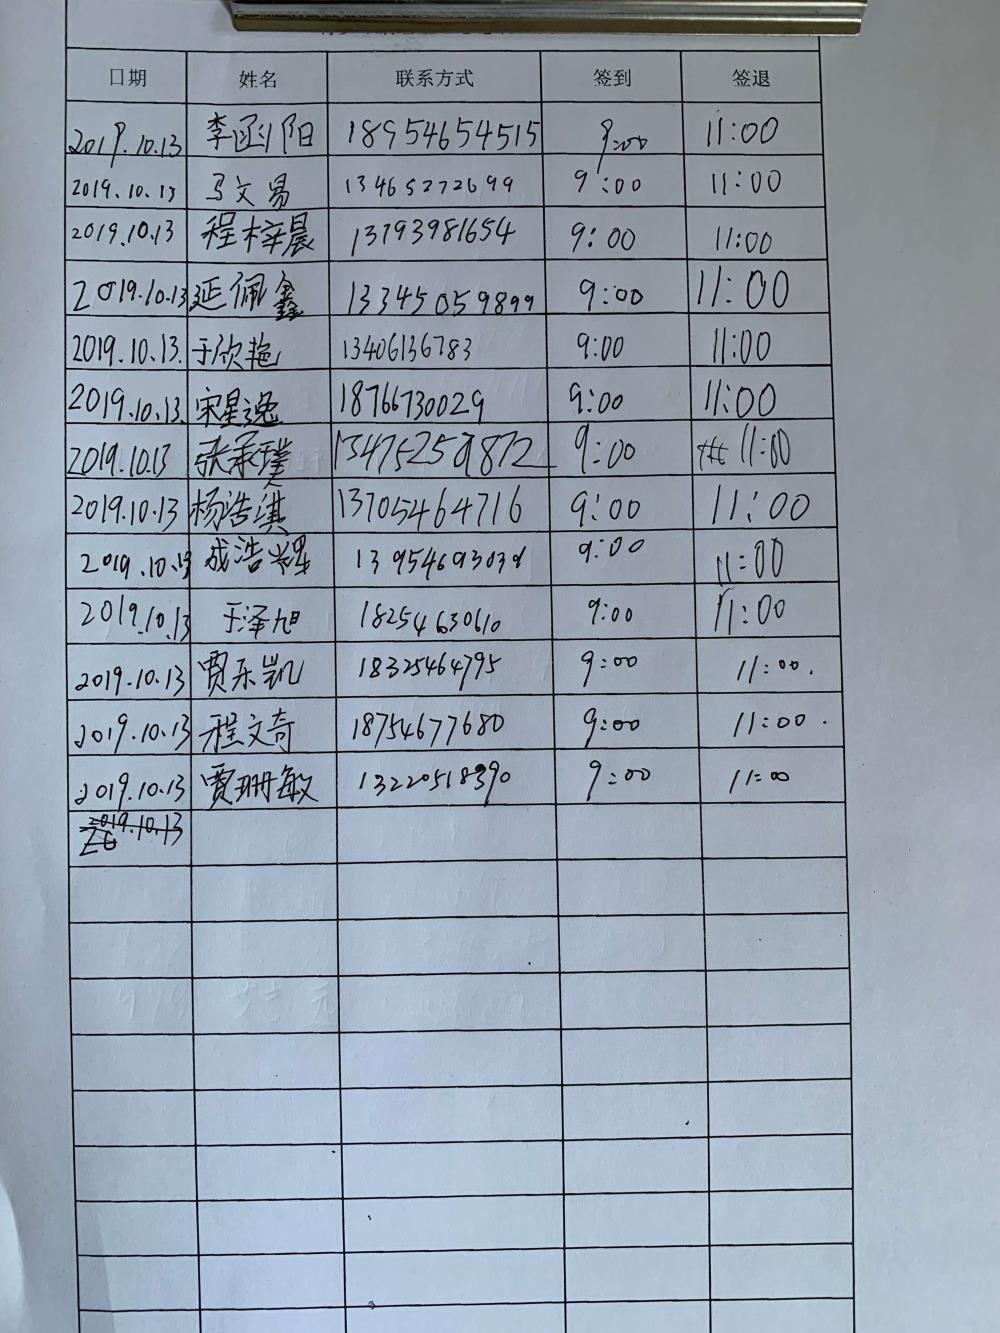 日期 姓名 联系方式 签到 签退
2019.10.13 李函阳 18954654515 9:00 11:00
2019.10.13 马文易 13465272699 9:00 11:00
2019.10.13 程梓晨 13793981654 9:00 11:00
2019.10.13 延佩鑫 13345059899 9:00 11:00
2019.10.13 于欣艳 13406136783 9:00 11:00
2019.10.13 宋星逸 18766730029 9:00 11:00
2019.10.13 张承璞 13475259872 9:00 11:00
2019.10.13 杨浩淇 13705464716 9:00 11:00
2019.10.13 成浩耀 9:00 11:00
2019.10.13 于泽旭 18254630610 9:00 11:00
2019.10.13 贾东凯 18325464795 9:00 11:00.
2019.10.13 程文奇 18754677680 9:00 11:00.
2019.10.13 贾珊敏 13220518390 9:00 11:00
2019.10.13